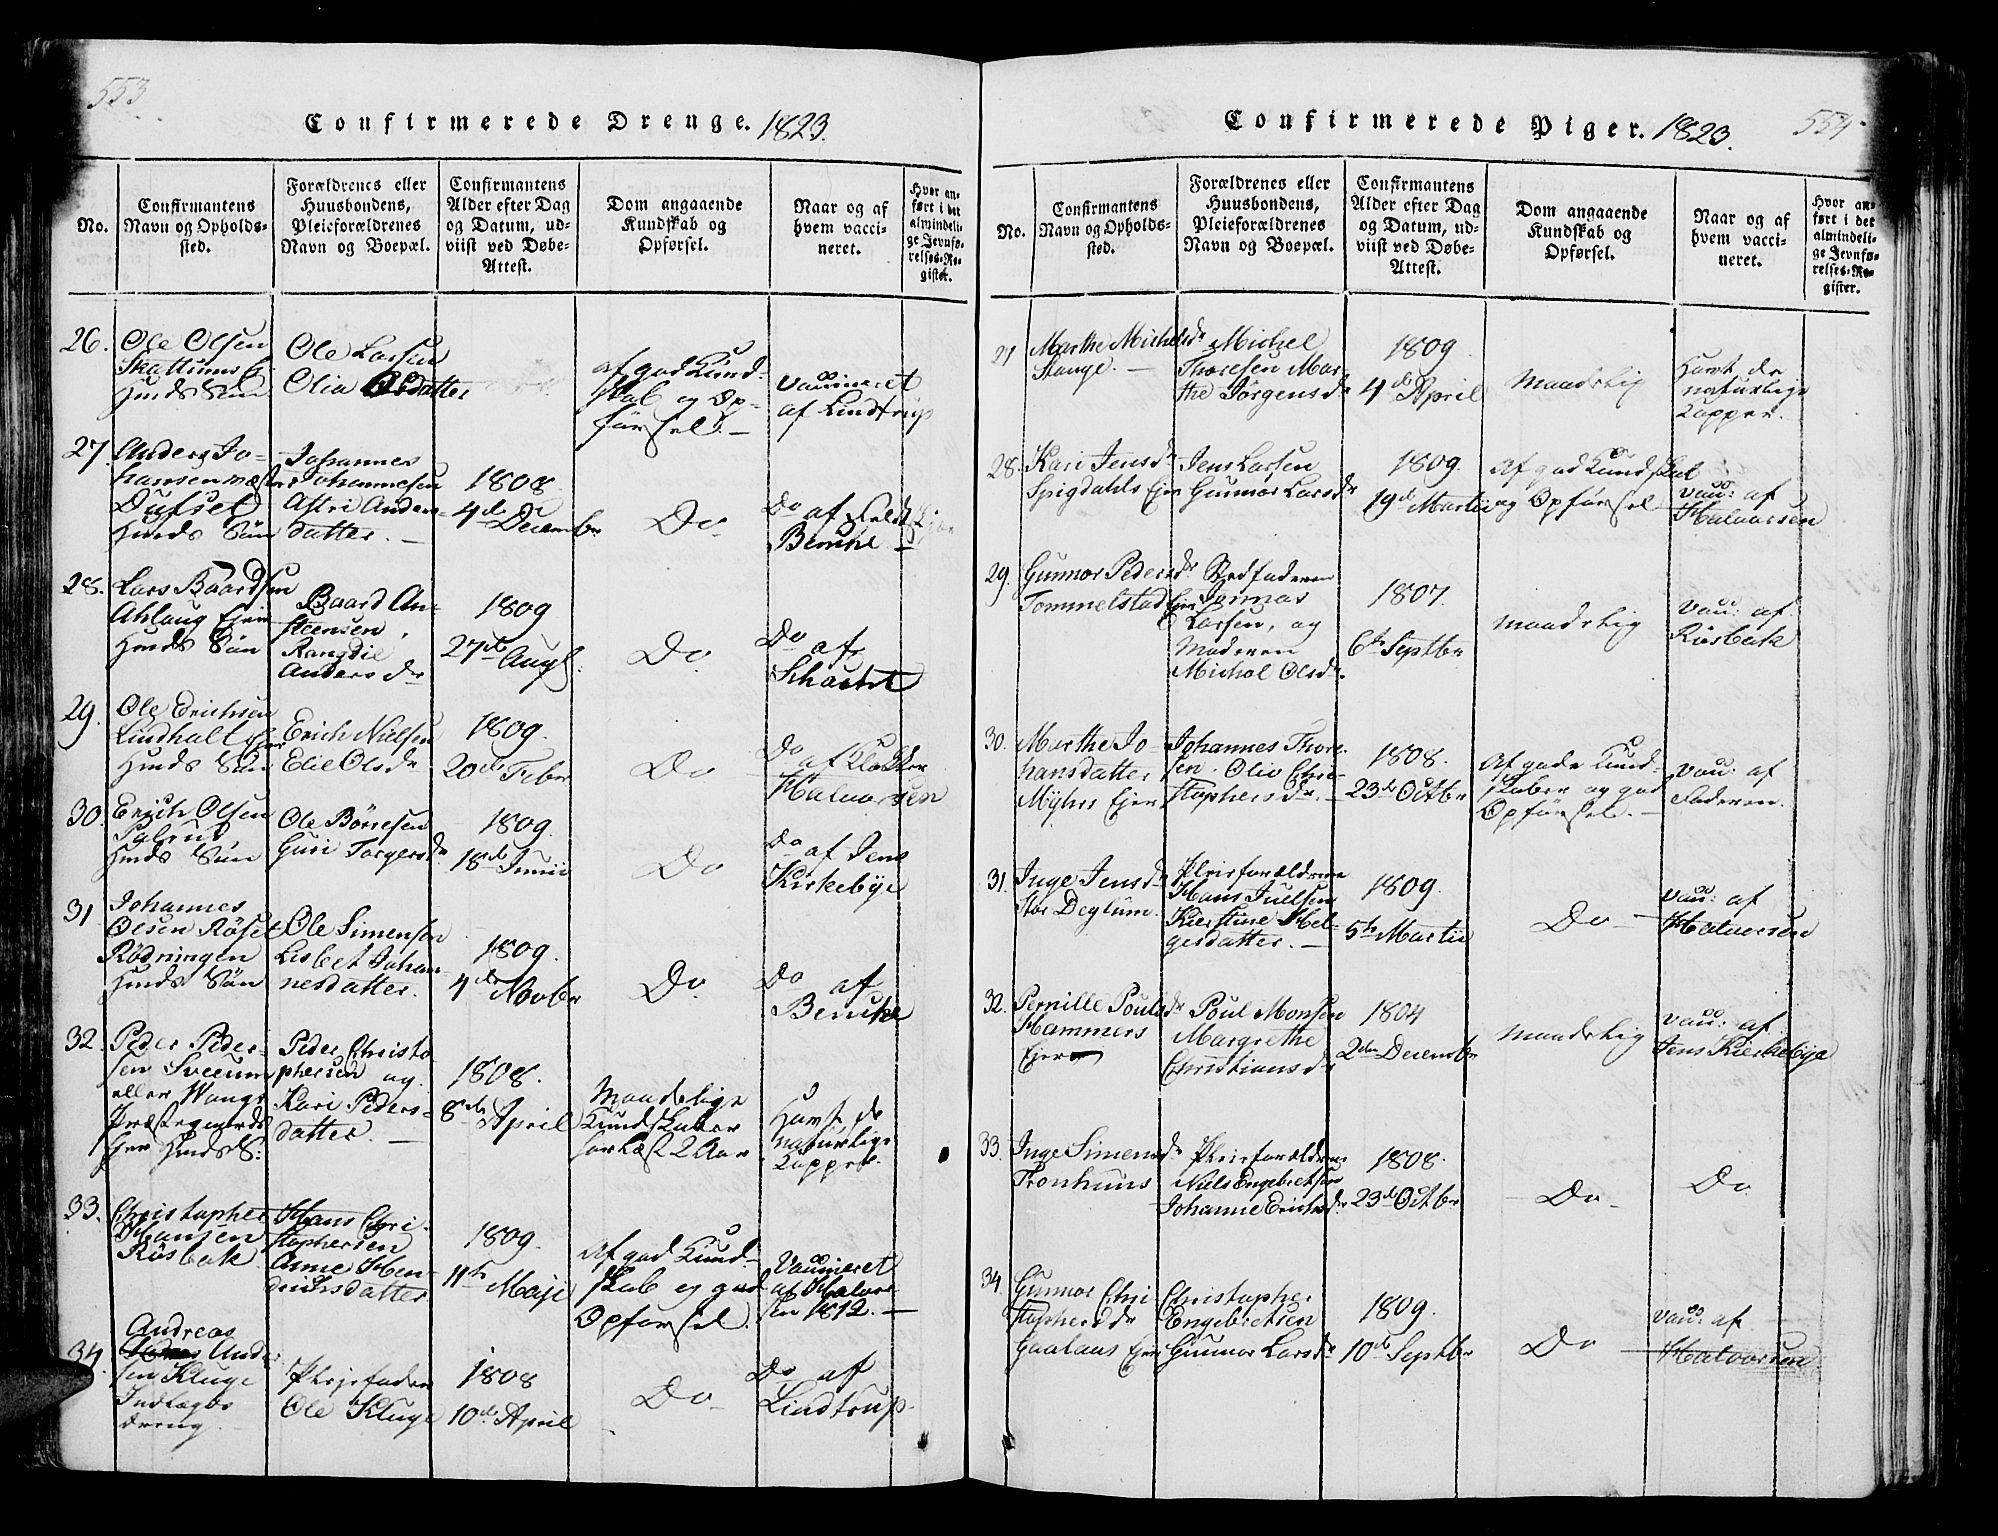 553
Confirmerede Drenge. 1823.
No.
Confirmantens
Navn og Opholds-
sted.
Forældrenes eller
Huusbondens,
Pleieforældrenes
Navn og Boepæl.
Confirmantens
Alder efter Dag
og Datum, ud-
viist ved Døbe-
Attest.
Dom angaaende
Kundskab og
Opførsel.
Naar og af
hvem vacci-
neret.
Hvor an-
ført i det
almindeli-
ge Jevnfø-
relses-Re-
gister.
26.
Ole Olsen
Huusds Søn
Ole Larsen
Olia Olsdatter
af god Kund-
skab og Op-
førsel. -
Vaccineret
af Lindtrup
27.
Anders Jo-
hansen
Dufset
Huusds Søn
Johannes
Johannesen
Astri Anders-
datter. -
1808
4de Decembr
Do
Do af
Bencke -
28.
Lars Baardsen
Ahlaug Eier
Huusds Søn
Baard An-
steensen,
Rangdie
Andersdr
1809
27de Augs.
Do
Do af
Schacht
29.
Ole Erichsen
Lindholt Eier
Huusds Søn
Erich Nielsen
Elie Olsdr
1809.
20de Febr
Do
Do
af Klokker
Halvorsen
30.
Erich Olsen
Huusds Søn
Ole Börresen
Guri Torgersdr
1809.
18de Junii
Do
Do af Jens
Kirkebye
31
Johannes
Olsen Röset
Rödningen
Huusds Søn
Ole Simensen
Lisbet Johan-
nesdatter.
1809.
4de Novbr
Do
Do af
Bencke
32.
Peder Peder-
sen Sveeum
eller Wangs
Præstegaards
Eier Huusds S:
Peder Christo-
phersen og
Kari Peders-
datter. -
1808.
8de April
Maadelige
Kundskaber
har læst 2 Aar
Havt de
naturlige
Kopper.
33.
Christopher
Hansen
Rüsbak
Hans Chri-
stophersen
Anne Hen-
drichsdatter
1809.
11te Maji
Af god Kund-
skab og god
Opførsel.
Vaccineret
af Halvor-
sen 1812. -
34.
Andreas
Ander-
sen Kluge
Indtagts
dreng
Pleiefader
Ole Kluge
1808
10de April
Do
Do af
Lindtrup
Confirmerede Piger. 1823.
554
No.
Confirmantens
Navn og Opholds-
sted.
Forældrenes eller
Huusbondens,
Pleieforældrenes
Navn og Boepæl.
Confirmantens
Alder efter Dag
og Datum, ud-
viist ved Døbe-
Attest.
Dom angaaende
Kundskab og
Opførsel.
Naar og af
hvem vacci-
neret.
Hvor an-
ført i det
almindeli-
ge Jevnfø-
relses-Re-
gister.
27
Marthe Michelsdr
Stange. -
Michel
Thoresen Mar-
the Jörgensdr
1809
4de April
Maadelig
Havt de
naturlige
Kopper.
28.
Kari Jensdr
Spigdahls Eier
Jens Larsen
Gunnor Larsdr
1809.
19de Martii
Af god Kundskab
og Opførsel
Vacc: af
Halvorsen
29.
Gunnor Pedersdr
Tommelstad Eier
Stedfaderen
Larsen, og
Moderen
Michol Olsdr.
1807.
6te Septbr
Maadelig
Vacc: af
Rüsbak
30.
Marthe Jo-
hansdatter
Myhrs Eier
Johannes Thore-
sen. Olia Chri-
stophersdr. -
1808.
23de Octbr
Af gode Kund-
skaber og god
Opførsel. -
Vacc: af
Faderen.
31.
Inge Jensdr
Stor Deglum.
Pleieforældrene
Hans Juelsen
Kierstine Hel-
gesdatter. -
1809.
5te Martii
Do
Vacc: af
Halvorsen
32.
Pernille Poulsdr
Hammers
Eier
Poul Monsen
Margrethe
Christiansdr
1804
2den Decembr
Maadelig
Vacc: af
Jens Kierkebye
33.
Inge Simensdr
Tronhuus
Pleieforældrene
Niels Engebretsen
Johanne Erichsdr.
1808.
23de Octbr
Do
Do
34.
Gunnor Chri-
stophersdr
Gaalaas Eier
Christopher
Engebretsen
Gunnor Larsdr
1809.
10de Septbr
Do
Vacc: af
Halvorsen